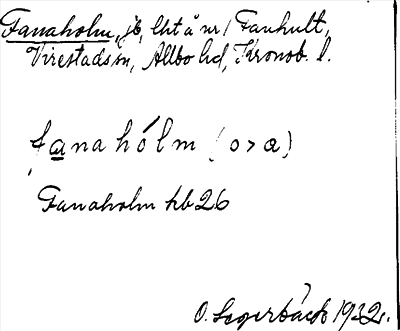 Fanaholm, jb, lht å nr 1 Fanhult,
Virestads sn, Allbo hd, Kronob. l.
fanahólm (o > a)
Fanaholm hb 26
O. Segerbäck 1932.